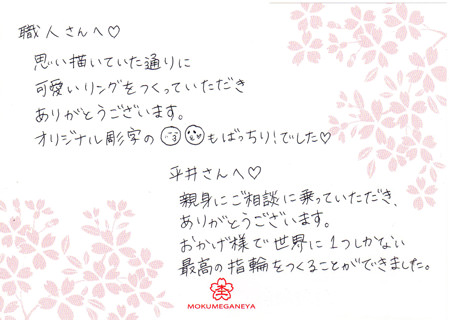 職人さんへ♡
思い描いていた通りに
可愛いリングをつくっていただき
ありがとうございます。
オリジナル彫字の もばっちり!でした♡
平井さんへ♡
親身にご相談に乗っていただき、
ありがとうございます。
おかげ様で世界に1つしかない
最高の指輪をつくることができました。
MOKUMEGANEYA